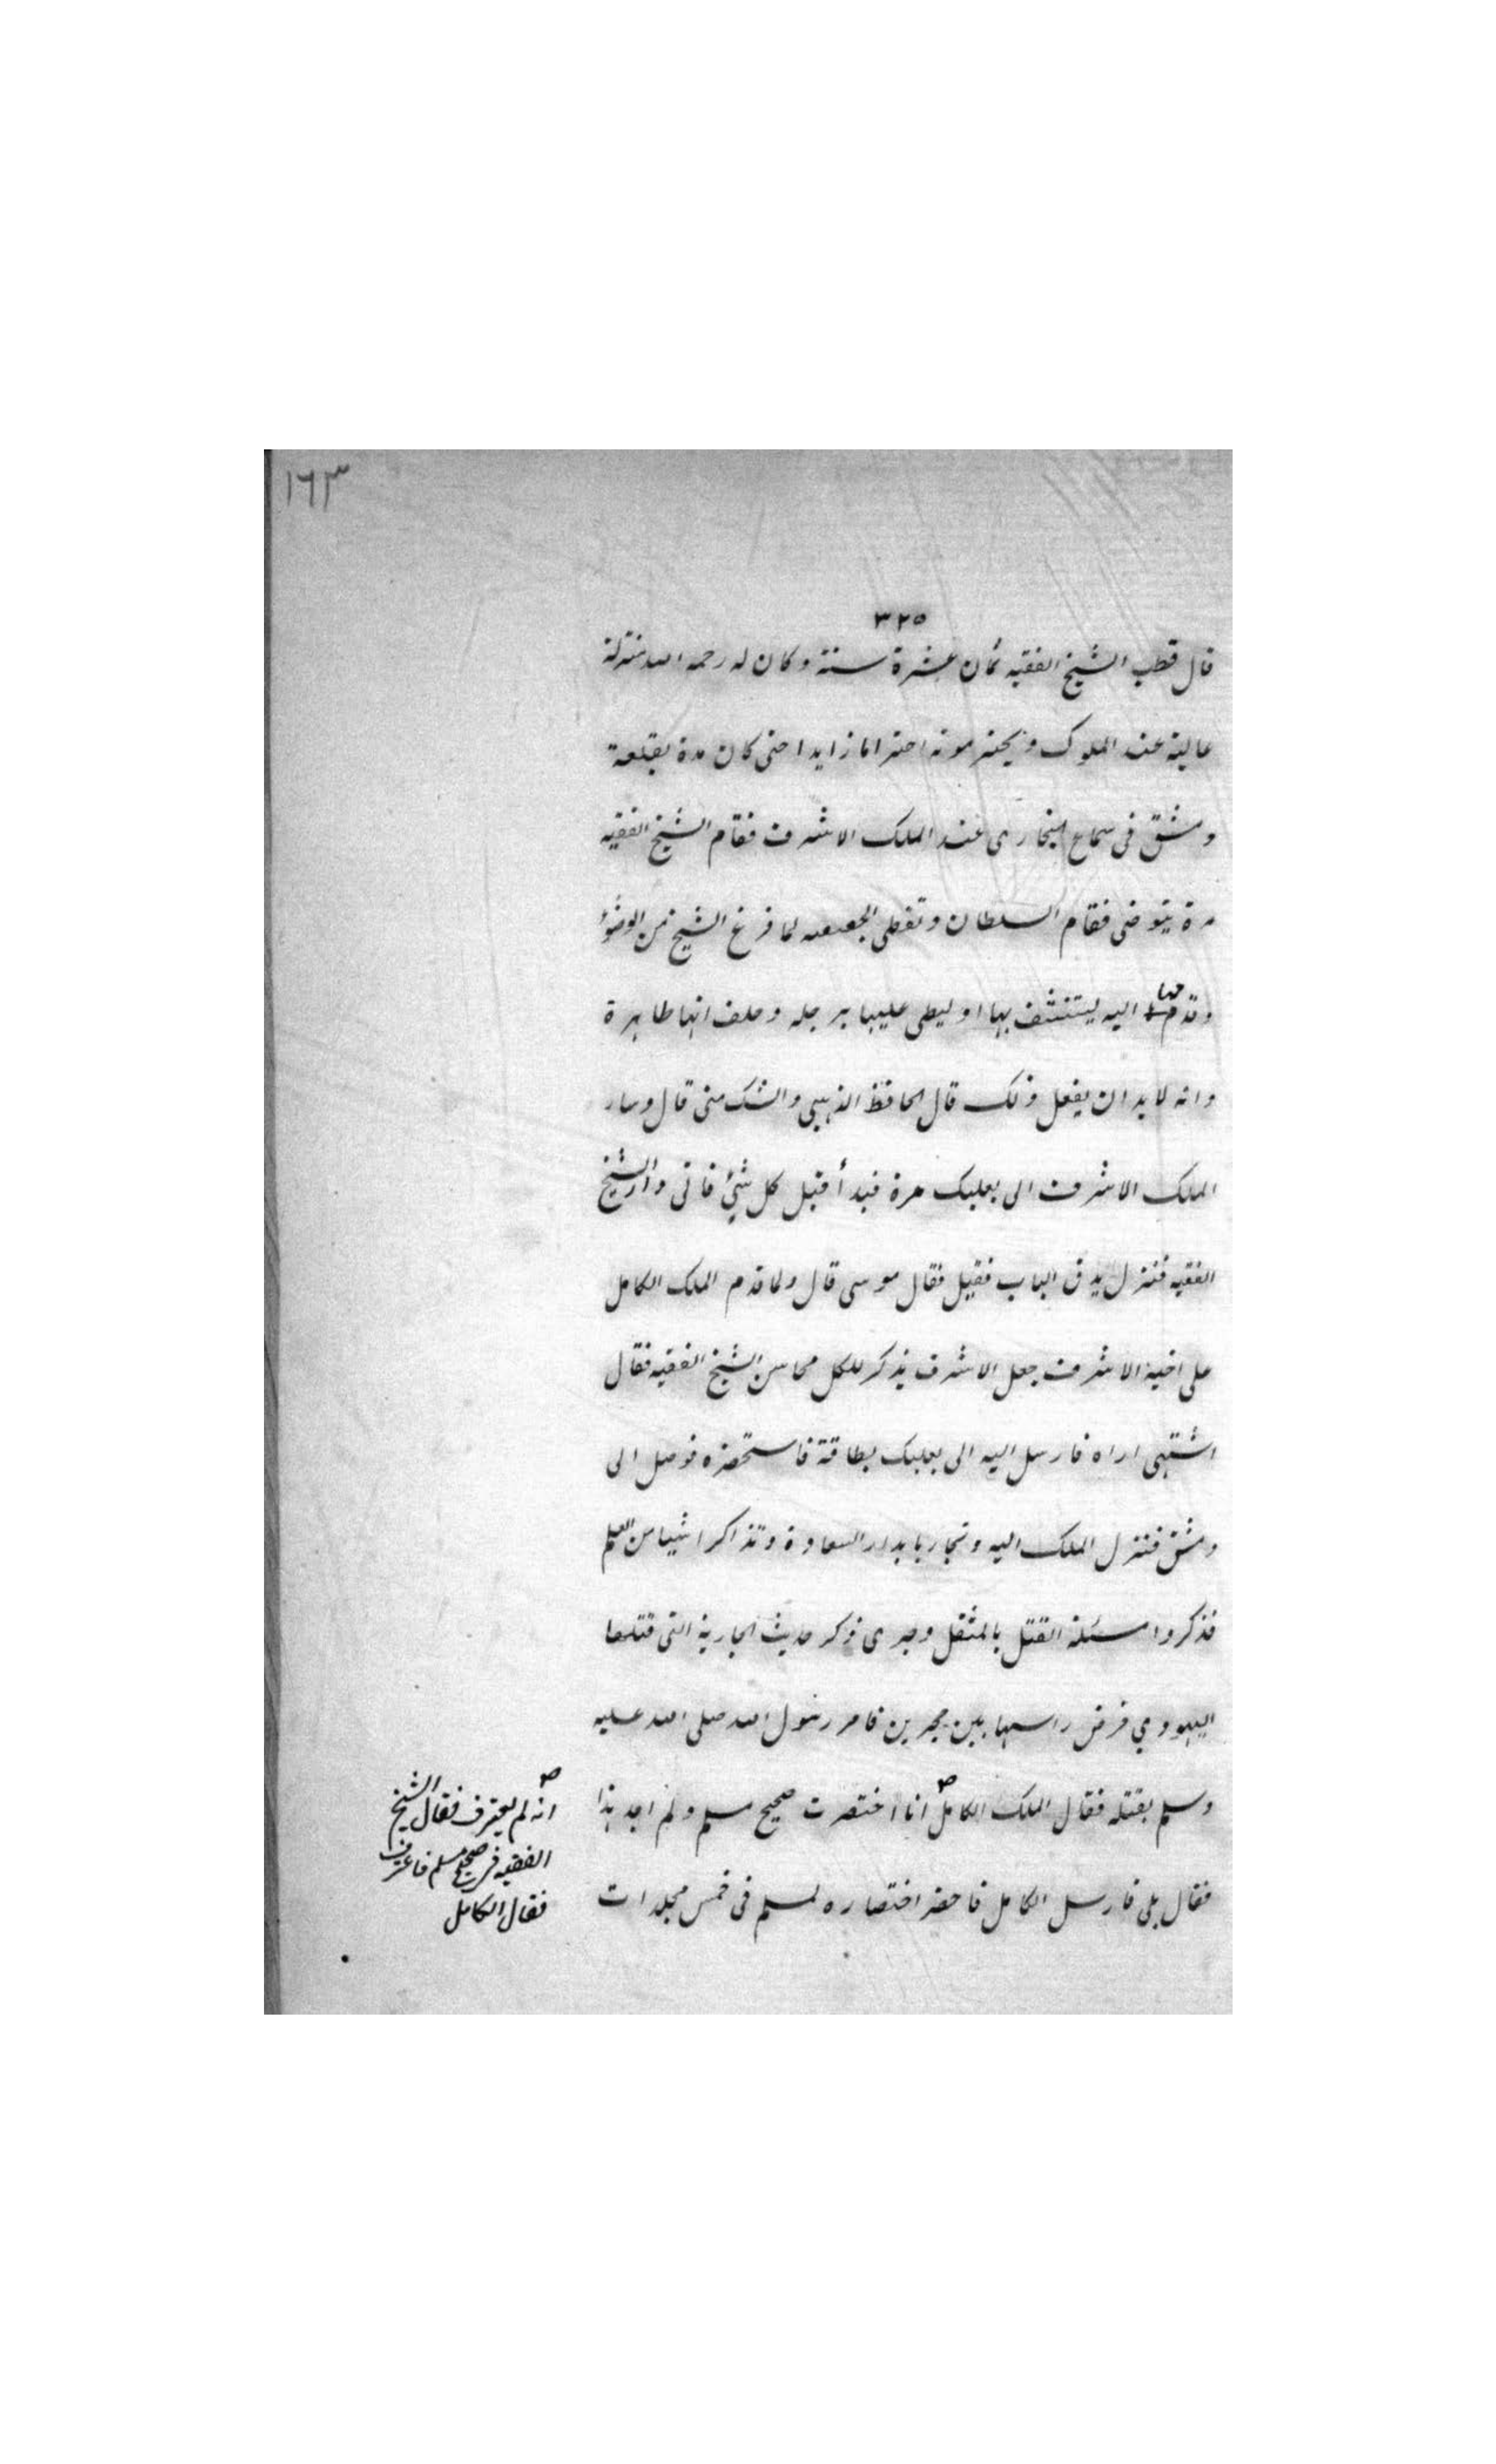 ١٦٣
٣٢٥
قال قطب الشيخ الفقيه ثمان عشرة سنة وكان له رحمه الله منزلة
عالية عند الملوك ويحترمونه احتراما زايدا حتى كان مدة بقلعة
دمشق فى سماع البخارى عند الملك الاشرف فقام الشيخ الفقيه
مرة يتوضى فقام السلطان ونفض لما فرغ الشيخ من الوضوء
وقدمها اليه ليتنشف بها او ليطى عليها برجله وحلف انها طاهرة
وانه لا بد ان يفعل ذلك قال الحافظ الذهبي والشك منى قال وسار
الملك الاشرف الى بعلبك مرة فبدأ قبل كل شئ فاتى دار الشيخ
الفقيه فنزل يدق الباب فقيل فقال موسى قال ولما قدم الملك الكامل
على اخيه الاشرف جعل الاشرف يذكر للكل محاسن الشيخ الفقيه فقال
اشتهى اراه فارسل اليه الى بعلبك بطاقة فاستحضره فوصل الى
دمشق فنزل الملك اليه وتجاربا بدار السعادة وتذاكرا شيا من العلم
فذكروا مسئلة القتل بالمثقل وجرى ذكر حديث الجارية التى قتلها
اليهودي فرض راسها بين حجرين فامر رسول الله صلى الله عليه
وسلم بقتله فقال الملك الكامل انا اختصرت صحيح مسلم ولم اجد هذا
فقال بلى فارسل الكامل فاحضر اختصاره لمسلم فى خمس مجلدات
انه لم يعترف فقال الشيخ
الفقيه فى صحيح مسلم فاعترف
فقال الكامل